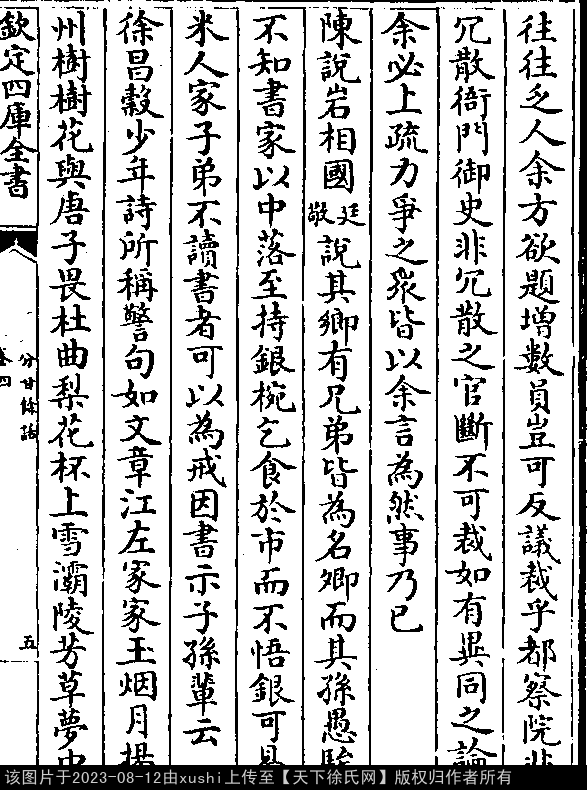 往往乏人余方欲題增數員豈可反議裁乎都察院非
冗散衙門御史非冗散之官斷不可裁如有異同之論
余必上疏力爭之衆皆以余言為然事乃已
陳說岩相國廷敬說其鄉有兄弟皆為名卿而其孫愚騃
不知書家以中落至持銀椀乞食於市而不悟銀可易
米人家子弟不讀書者可以為戒因書示子孫輩云
徐昌榖少年詩所稱警句如文章江左家家玉烟月揚
州樹樹花與唐子畏杜曲梨花杯上雪灞陵芳草夢中
欽定四庫全書
分甘餘話
卷四
五
该图片于2023-08-12由xushi上传至【天下徐氏网】版权归作者所有